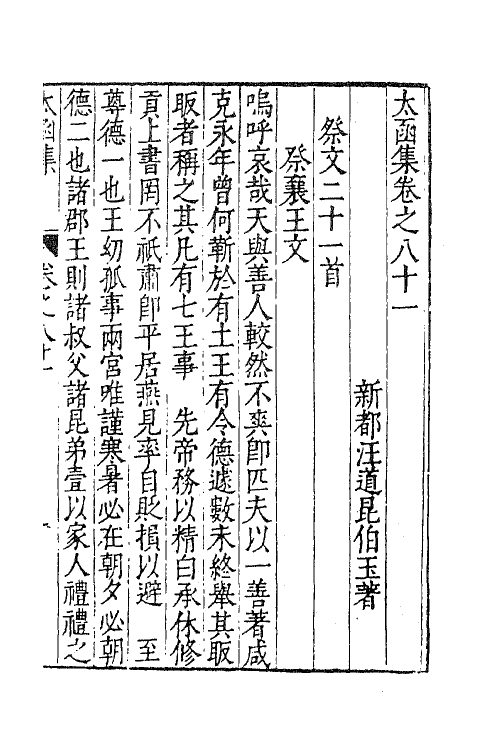 太函集卷之八十一
新都汪道昆伯玉著
祭文二十一首
祭襄王文
嗚呼哀哉天與善人較然不爽卽匹夫以一善著咸
克永年曾何靳於有土王有令德遽數未終舉其昄
昄者稱之其凡有七王事　先帝務以精白承休修
貢上書罔不祇肅卽平居燕見率自貶損以避　至
尊德一也王幼孤事兩宮唯謹寒暑必在朝夕必朝
德二也諸郡王則諸叔父諸昆弟壹以家人禮禮之
太函集　卷之八十一